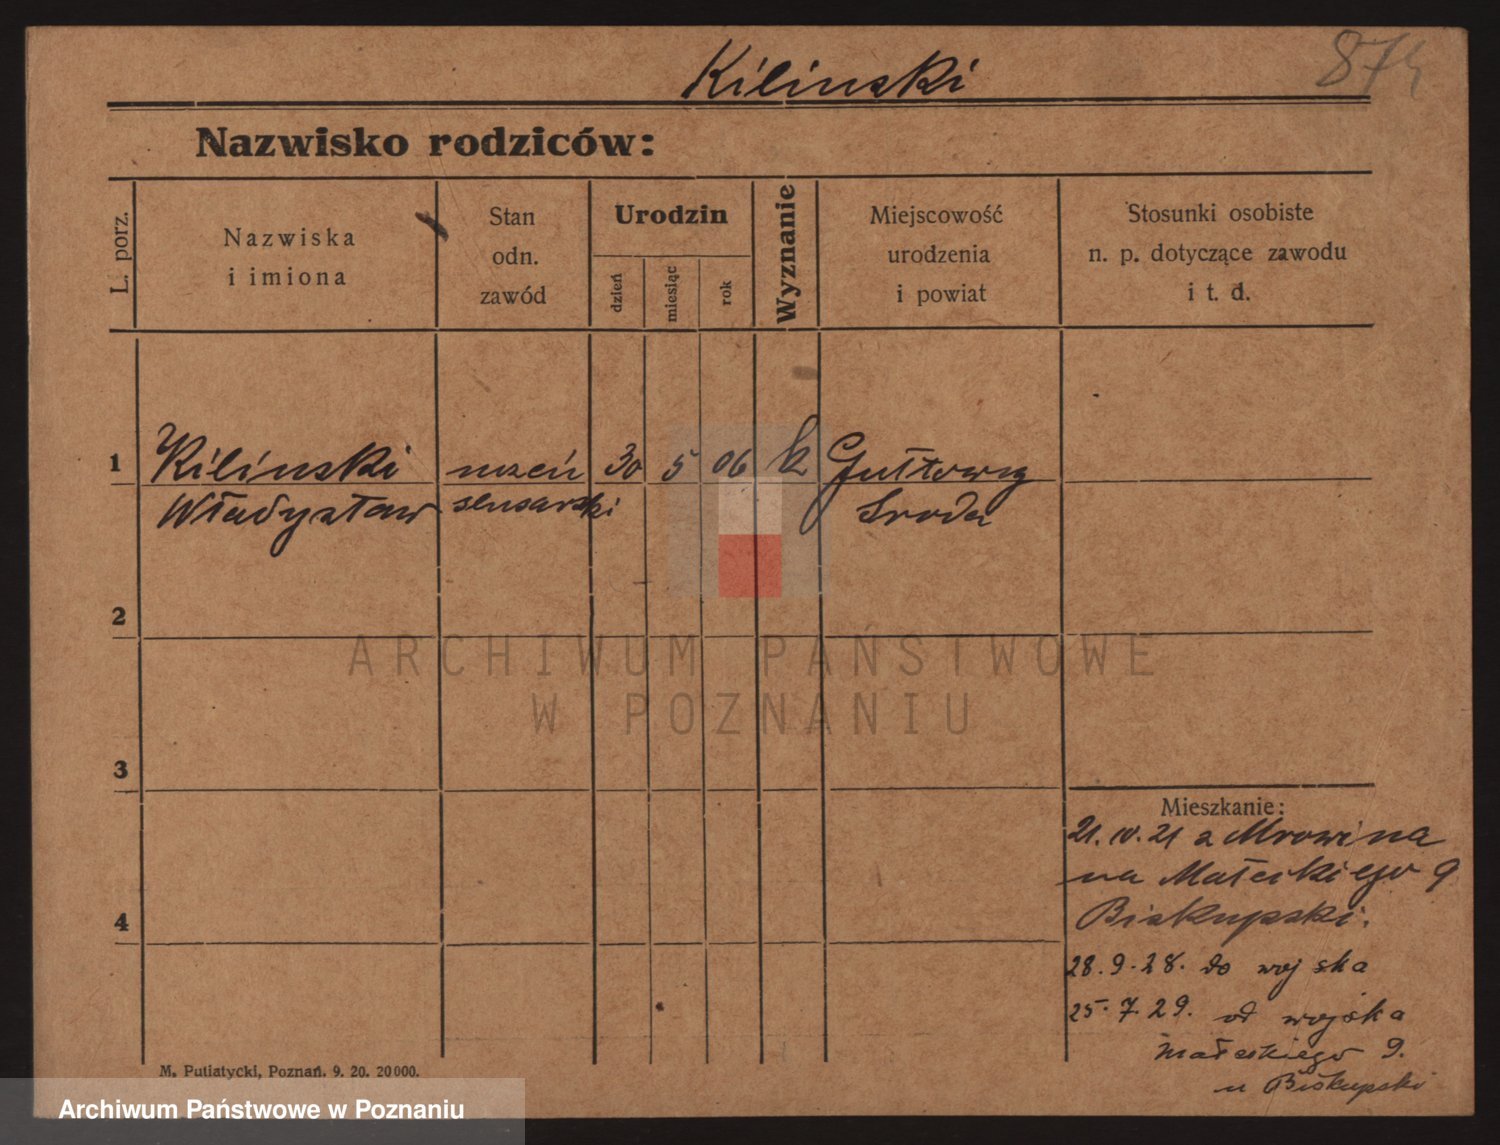 Kilinski
874
Nazwisko rodziców:
L. porz.
Nazwiska
i imiona
Stan
odn.
zawód
Urodzin
dzień
miesiąc
rok
Wyznanie
Miejscowość
urodzenia
i powiat
Stosunki osobiste
n. p. dotyczące zawodu
i t. d.
1
Kilinski uczeń 30 5 06 k Gułtowy
Władysław slusarski Sroda
2
ARCHIWUM PAŃSTWOWE
W POZNANIU
3
Mieszkanie:
21. IV. 21 z Mrowina
na Małeckiego 9
Biskupski.
4
28. 9. 28. do wojska
25. 7. 29. od wojska
Małeckiego 9.
u Biskupski
M. Putiatycki, Poznań. 9. 20. 20000.
Archiwum Państwowe w Poznaniu